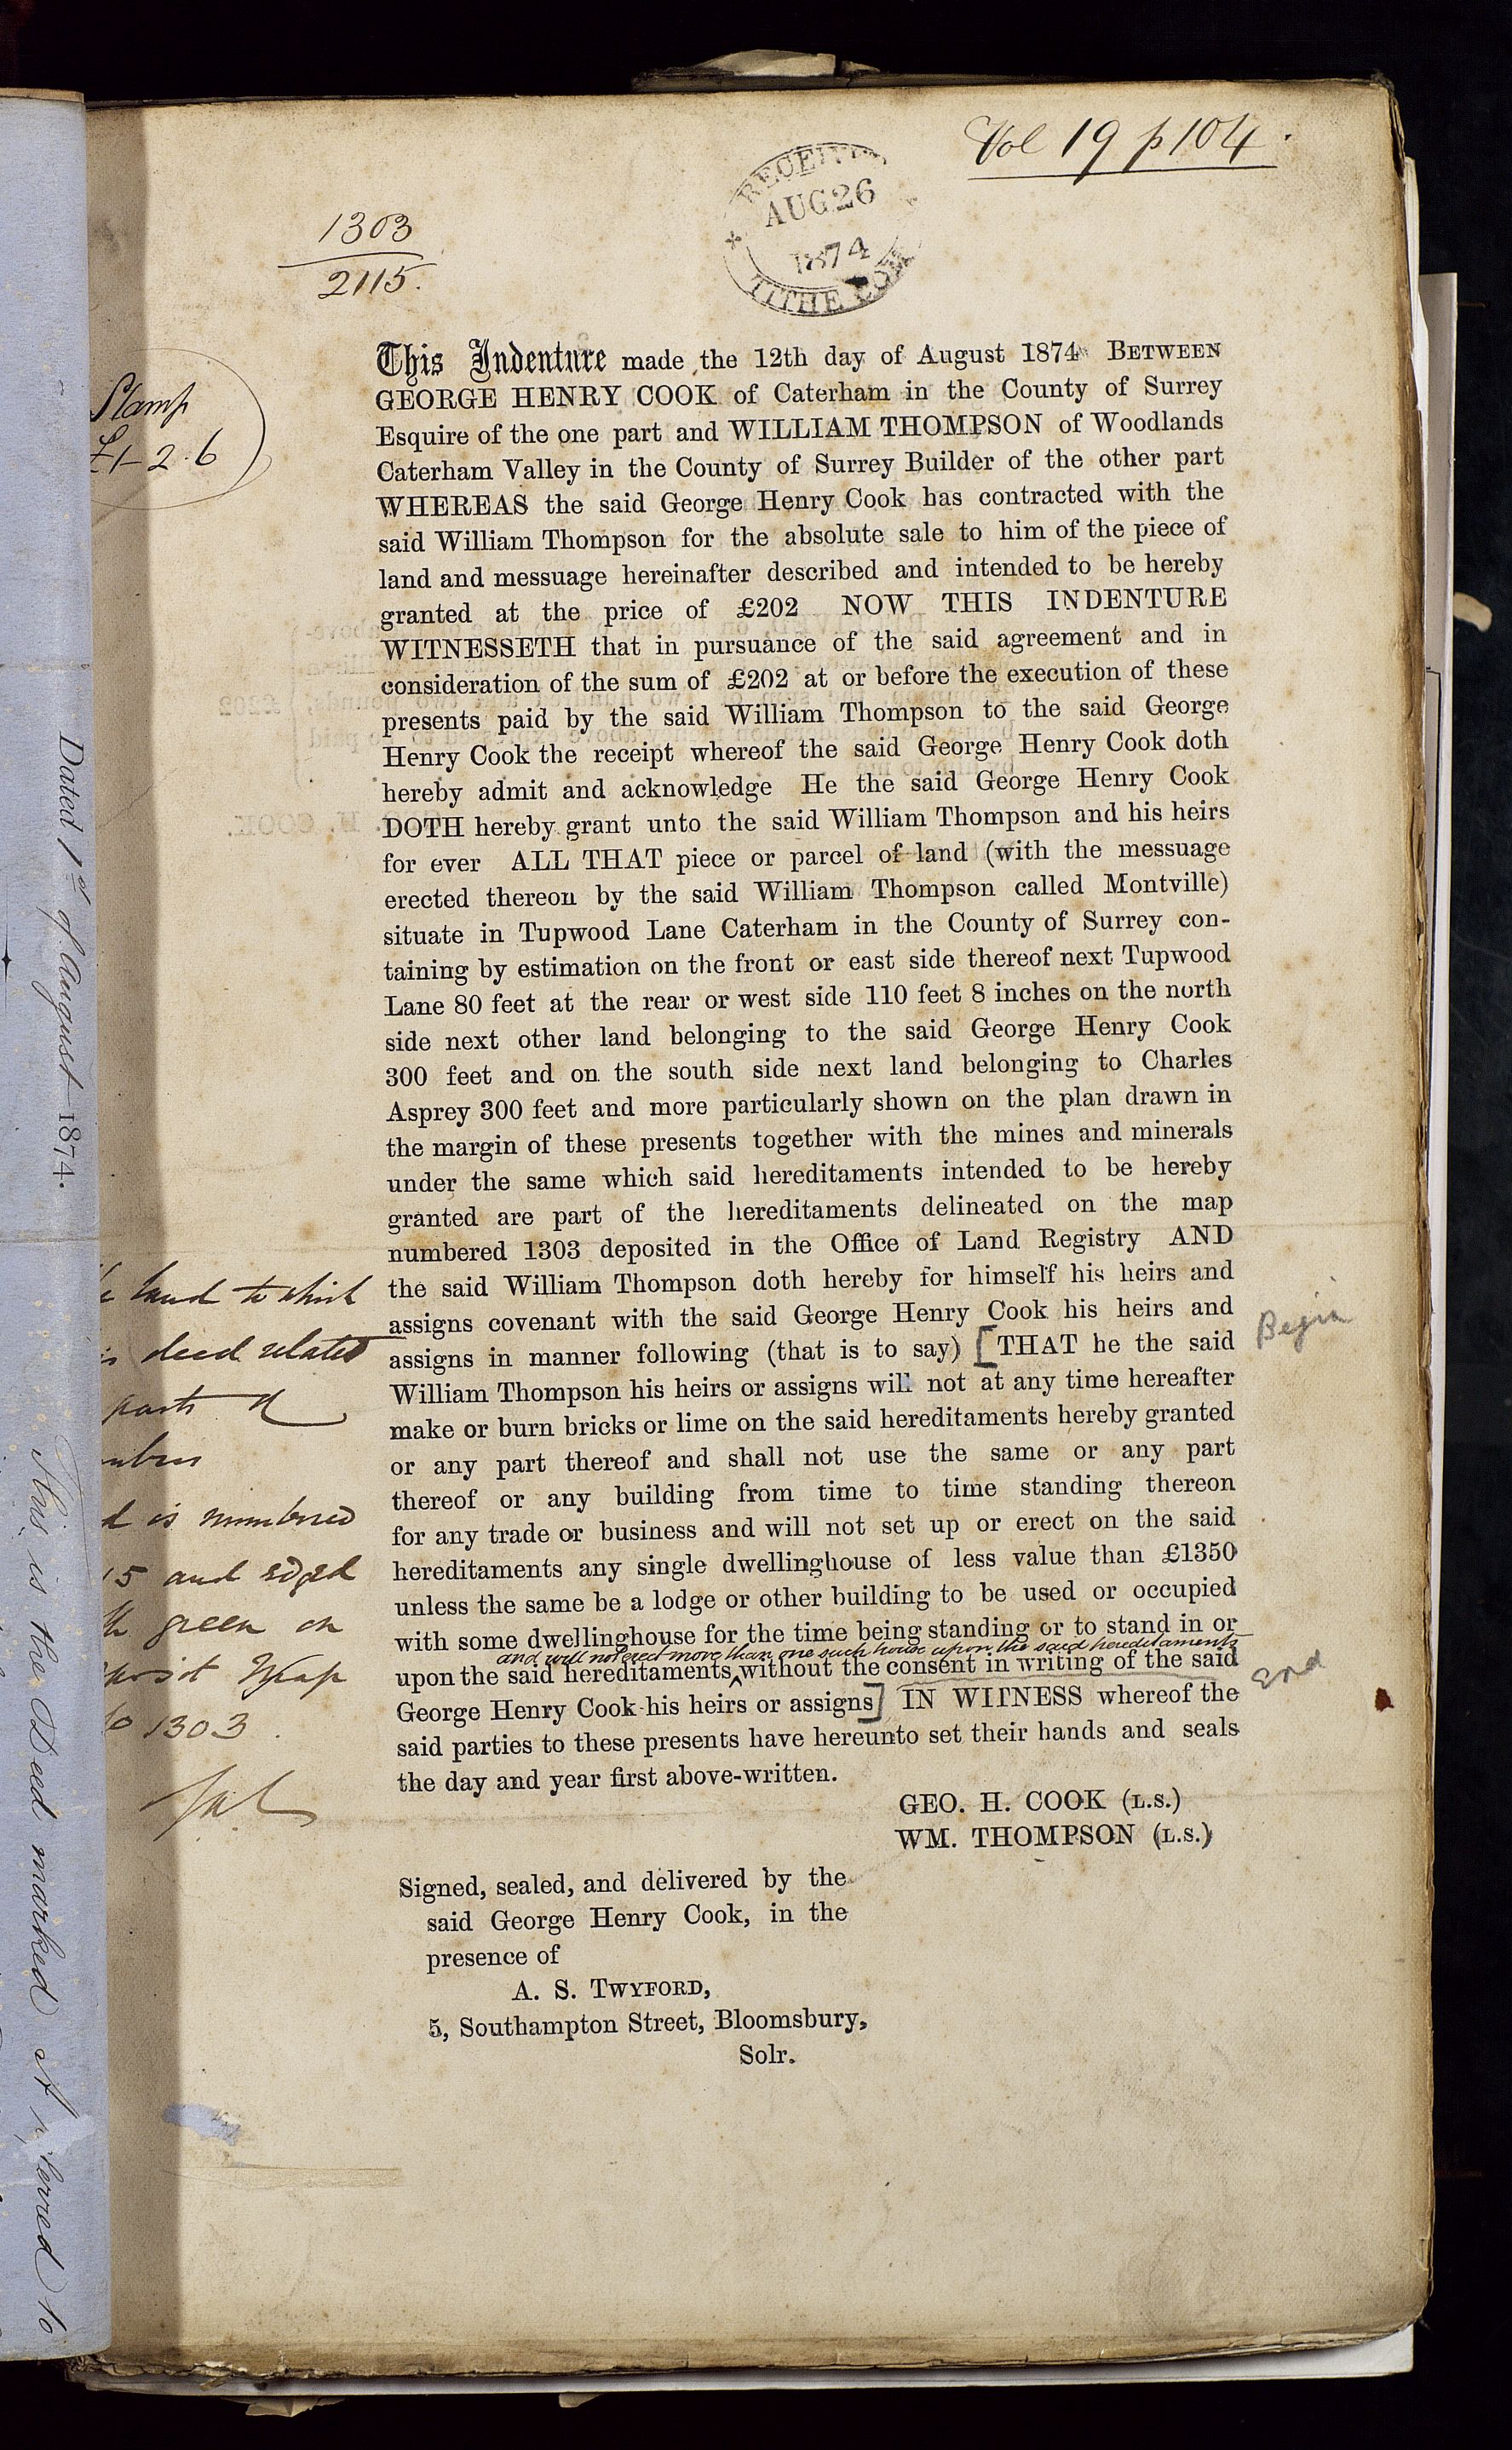 Vol 19 p 104.
RECEIVED
AUG 26
1874
TITHE COM
1303
2115.
Stamp
£1-2.6
This Indenture made the 12th day of August 1874 BETWEEN
GEORGE HENRY COOK of Caterham in the County of Surrey
Esquire of the one part and WILLIAM THOMPSON of Woodlands
Caterham Valley in the County of Surrey Builder of the other part
WHEREAS the said George Henry Cook has contracted with the
said William Thompson for the absolute sale to him of the piece of
land and messuage hereinafter described and intended to be hereby
granted at the price of £202 NOW THIS INDENTURE
WITNESSETH that in pursuance of the said agreement and in
consideration of the sum of £202 at or before the execution of these
presents paid by the said William Thompson to the said George
Henry Cook the receipt whereof the said George Henry Cook doth
hereby admit and acknowledge He the said George Henry Cook
DOTH hereby grant unto the said William Thompson and his heirs
for ever ALL THAT piece or parcel of land (with the messuage
erected thereon by the said William Thompson called Montville)
situate in Tupwood Lane Caterham in the County of Surrey con-
taining by estimation on the front or east side thereof next Tupwood
Lane 80 feet at the rear or west side 110 feet 8 inches on the north
side next other land belonging to the said George Henry Cook
300 feet and on the south side next land belonging to Charles
Asprey 300 feet and more particularly shown on the plan drawn in
the margin of these presents together with the mines and minerals
under the same which said hereditaments intended to be hereby
granted are part of the hereditaments delineated on the map
numbered 1303 deposited in the Office of Land Registry AND
the said William Thompson doth hereby for himself his heirs and
assigns covenant with the said George Henry Cook his heirs and
assigns in manner following (that is to say) [THAT he the said
Begin
William Thompson his heirs or assigns will not at any time hereafter
make or burn bricks or lime on the said hereditaments hereby granted
or any part thereof and shall not use the same or any part
thereof or any building from time to time standing thereon
for any trade or business and will not set up or erect on the said
hereditaments any single dwellinghouse of less value than £1350
unless the same be a lodge or other building to be used or occupied
with some dwellinghouse for the time being standing or to stand in or
and will not erect more than one such house upon the said hereditaments
upon the said hereditaments ^ without the consent in writing of the said
End
George Henry Cook his heirs or assigns] IN WITNESS whereof the
said parties to these presents have hereunto set their hands and seals
the day and year first above-written.
GEO. H. COOK (L.S.)
WM. THOMPSON (L.S.)
Signed, sealed, and delivered by the
said George Henry Cook, in the
presence of
A. S. TWYFORD,
5, Southampton Street, Bloomsbury,
Solr.
land to which
deed related
parts of
is numbered
15 and edged
green on
Map
1303.
Dated 1st of August 1874.
This is the Deed marked A referred to